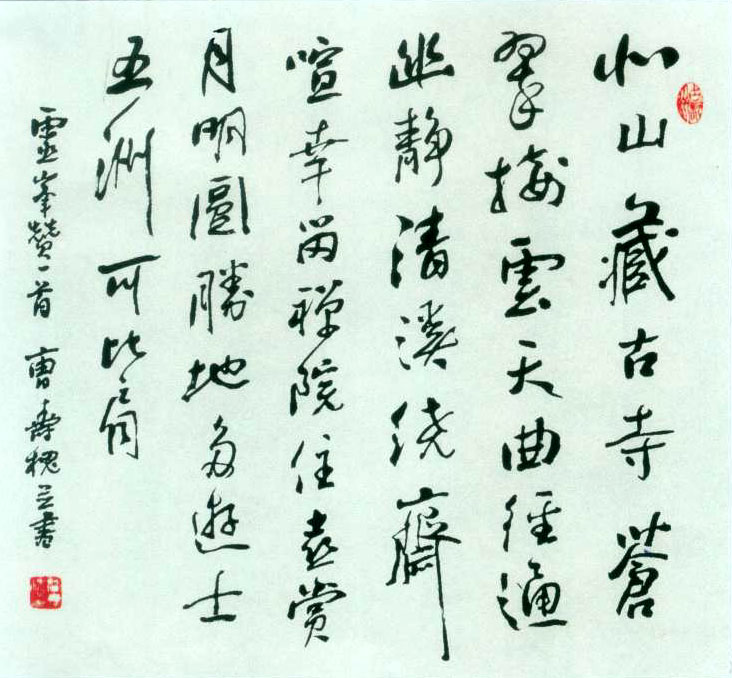 北山藏古寺蒼
翠接雲天曲徑通
幽靜清溪绕齋
喧幸留禪院住喜賞
月明圓勝地多遊士
五洲可比肩
靈峯贊一首 曹壽槐書